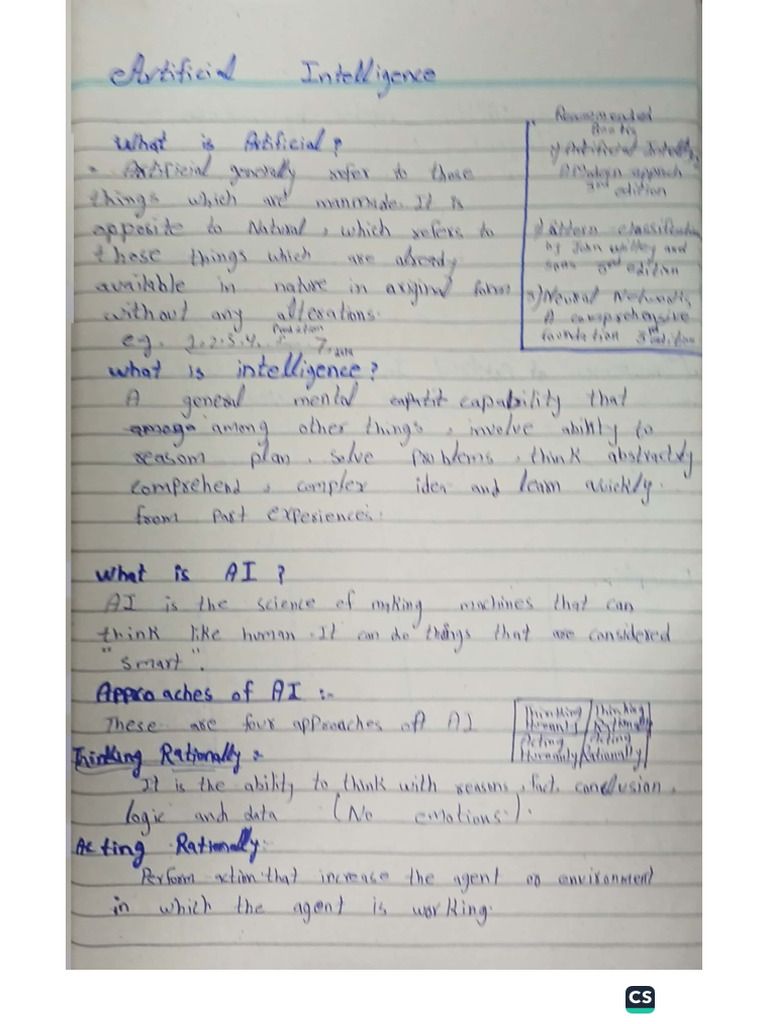 Artificial Intelligence
What is Artificial?
Artificial generally refer to those
things which are manmade. It is
opposite to Natural, which refers to
those things which are already
available in nature in original form
without any alterations.
eg. 1,2,3,4, 7, data
Recommended
Books
1) Artificial Intellig
A Modern approch
3rd edition
2) Pattern classification
by John willey and
sons 3rd edition
3) Neural Networks
A comprehensive
foundation 3rd edition
What is intelligence?
A general mental capability that
among other things, involve ability to
reasom plan, solve problems, think abstractly
comprehend, complex idea and learn quickly.
from past experiences.
What is AI?
AI is the science of making machines that can
think like human. It can do things that are considered
"smart".
Approaches of AI :-
These are four approaches of AI
Thinking Humanly Thinking Rationally
Acting Humanly Acting Rationally
Thinking Rationally:
It is the ability to think with reasons, fact, conclusion,
logic and data (No emotions).
Acting Rationally:
Perform action that increase the agent or environment
in which the agent is working.
CS